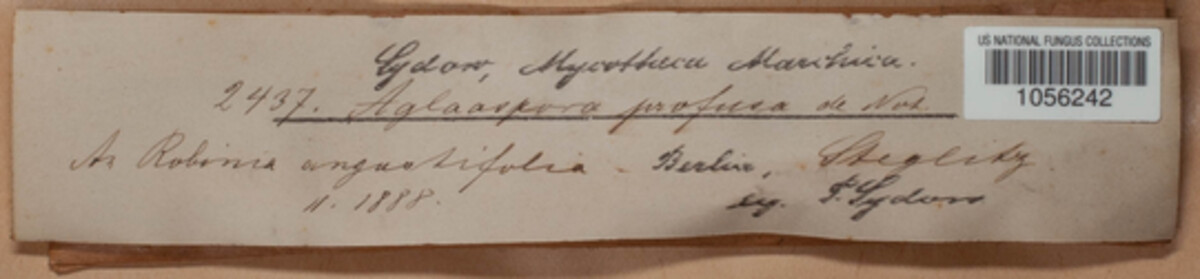 Sydow, Mycotheca Marchica.
2437. Aglaospora profusa de Not.
An Robinia angustifolia - Berlin, Steglitz
11. 1888.
leg. P. Sydow
US NATIONAL FUNGUS COLLECTIONS
1056242